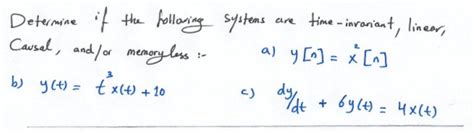 Determine if the following systems are time-invariant, linear,
Causal, and/or memoryless :-   a) y[n] = x²[n]
b) y(t) = t³x(t) + 10   c) dy/dt + 6y(t) = 4x(t)